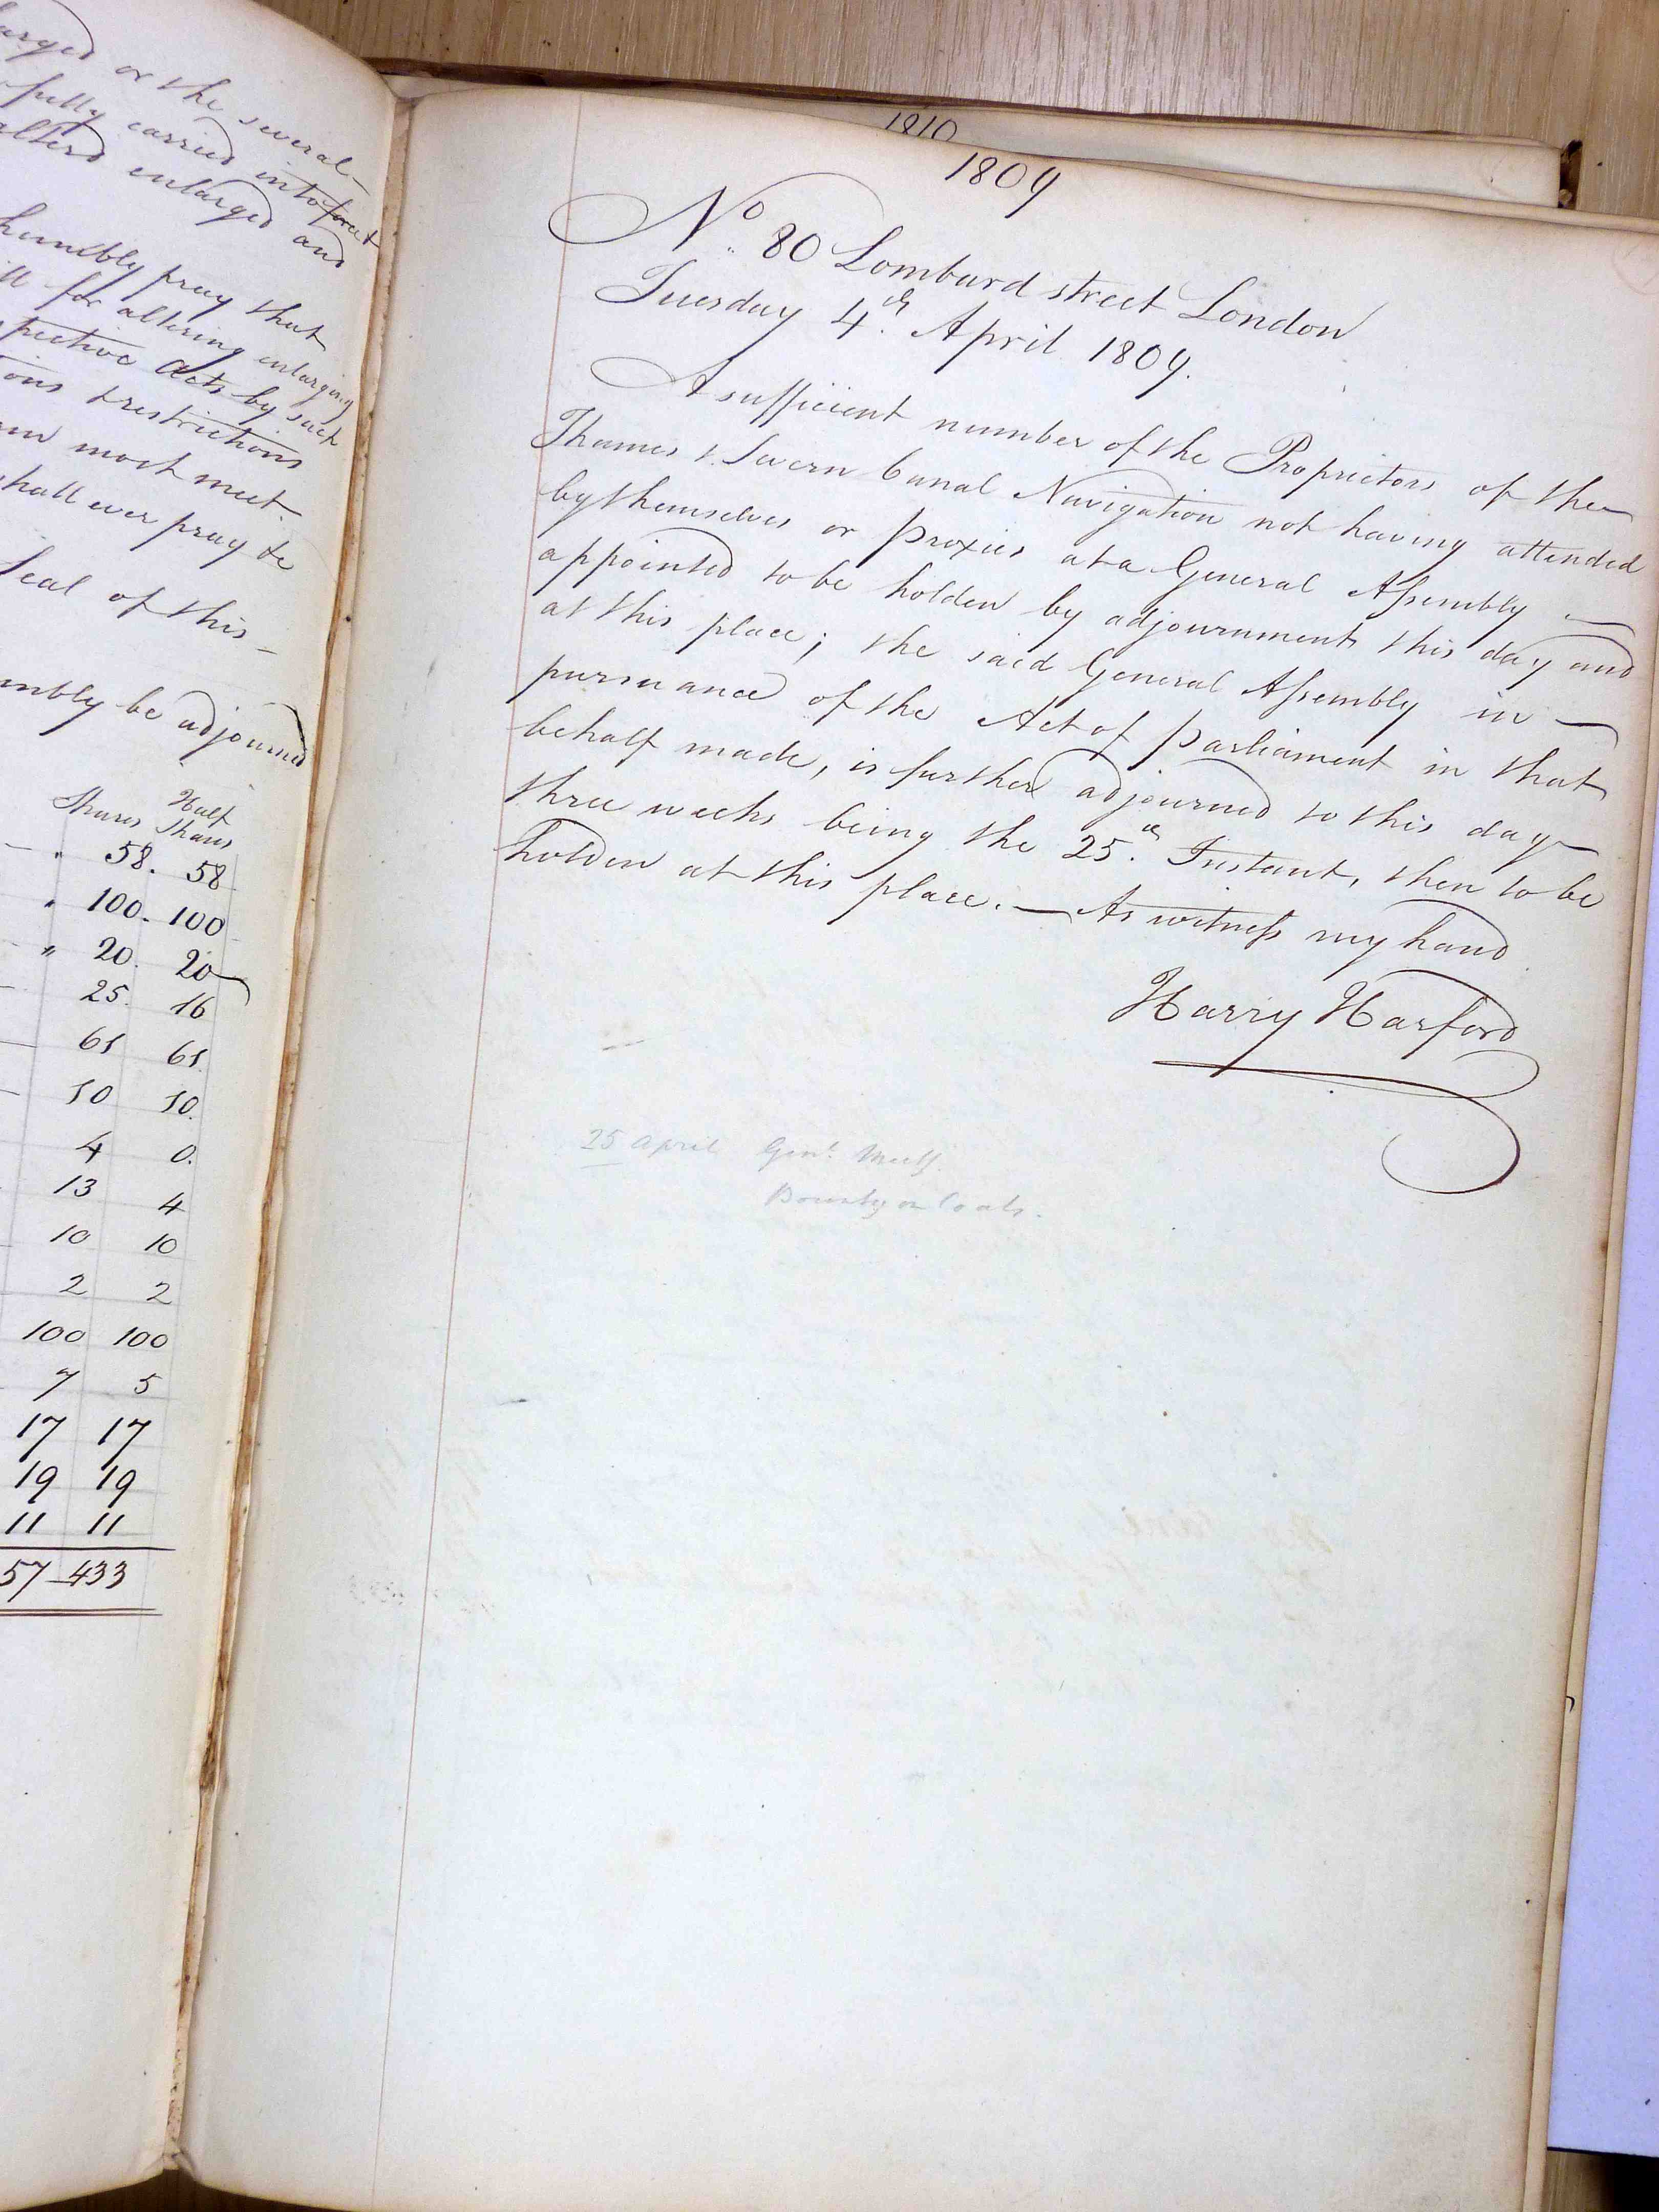 or the several
fully carried into force &
alterd enlarged and
humbly pray that
for altering enlarging
Acts by such
restrictions
most meet.
shall ever pray &c
Seal of this
be adjourned
Shares Half Shares
" 58. 58
" 100. 100
" 20. 20
25. 16
61 61.
10 10.
4 0.
13 4
10 10
2 2
100 100
7 5
17 17
19 19
11 11
57 433
1810
1809
No. 80 Lombard street London
Tuesday 4th. April 1809.
A sufficient number of the Proprietors of the
Thames & Severn Canal Navigation not having attended
by themselves or proxies at a General Assembly
appointed to be holden by adjournment this day and
at this place; the said General Assembly in
pursuance of the Act of parliament in that
behalf made, is further adjourned to this day
three weeks being the 25th. Instant, then to be
holden at this place. — As witness my hand
Harry Harford
25 April Genl. Meetg.
Bounty on Coals.